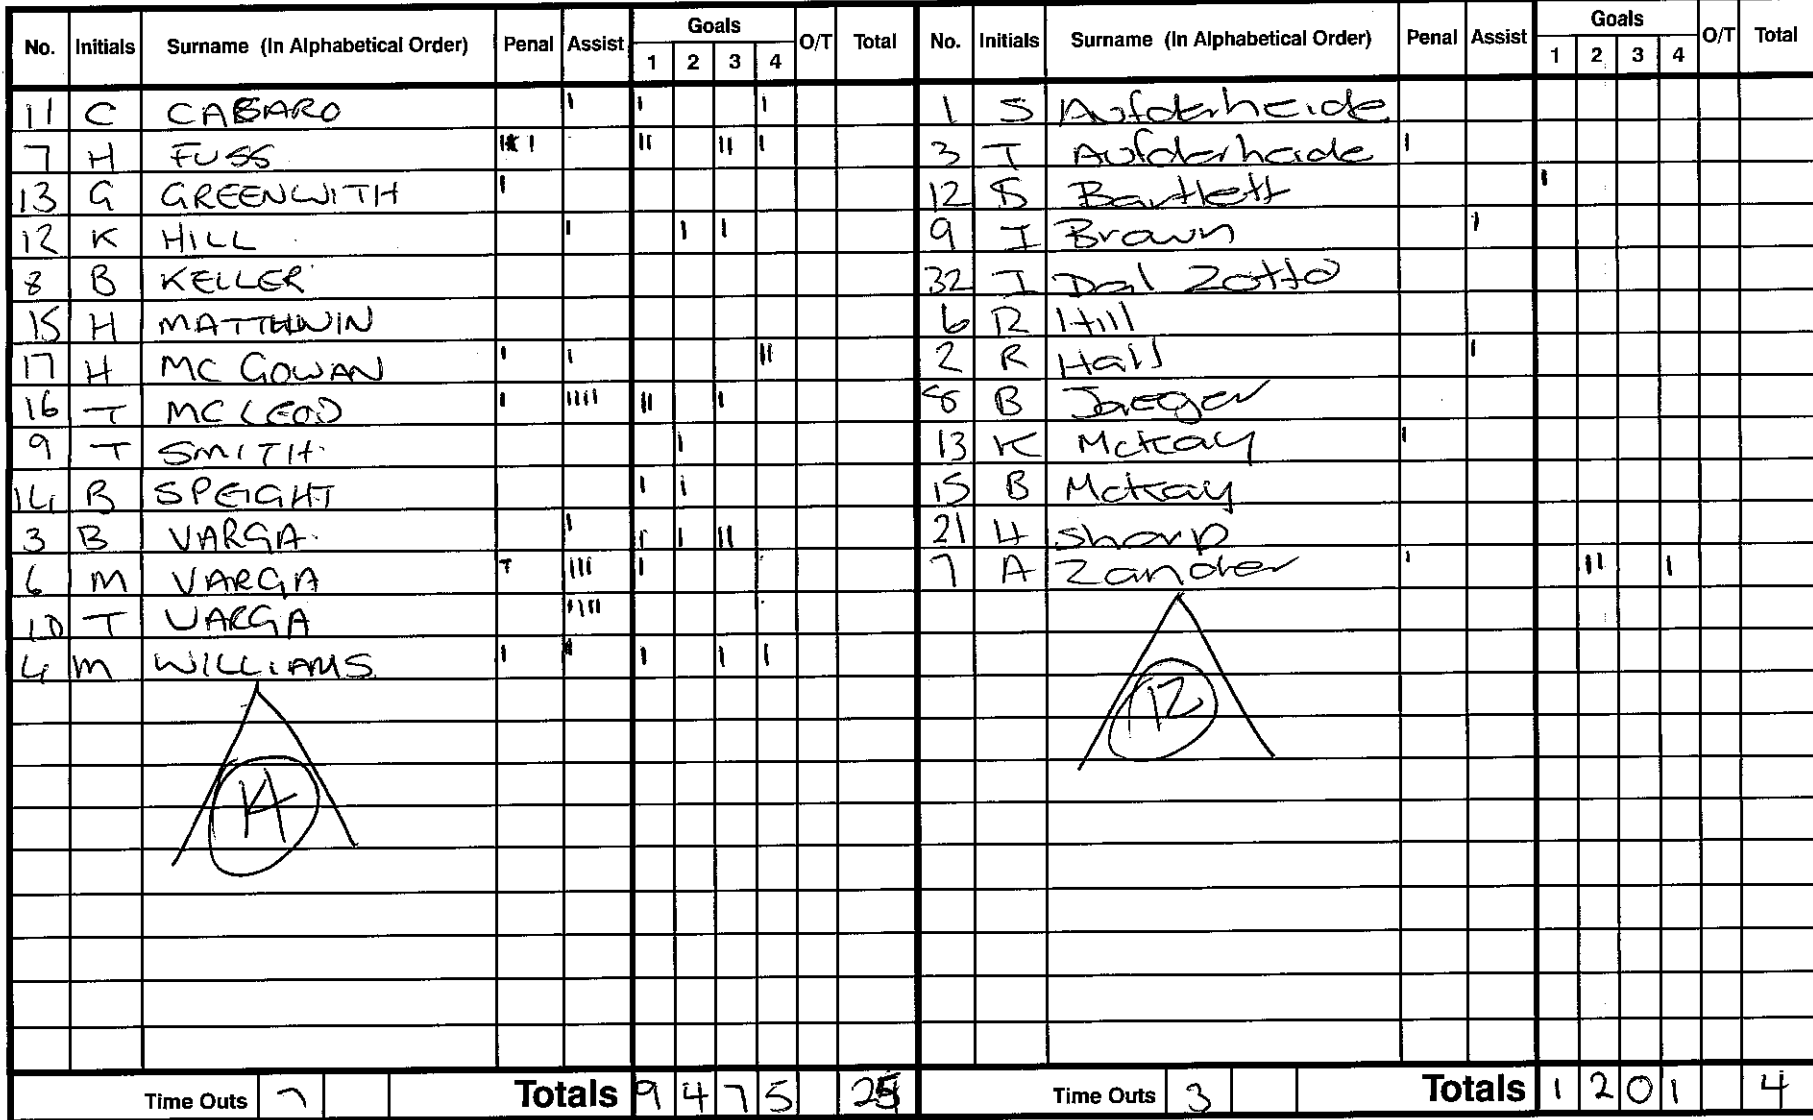 No. Initials Surname (In Alphabetical Order) Penal Assist Goals 1 2 3 4 O/T Total
11 C CABARO I I I
7 H FUSS I II II I
13 G GREENWITH I
12 K HILL I I I
8 B KELLER
15 H MATTHWIN
17 H MC GOWAN I I II
16 T MCLEOD I IIII II I
9 T SMITH I
14 B SPEIGHT I I
3 B VARGA I I I II
6 M VARGA T III I
10 T VARGA IIII
4 M WILLIAMS I I I I
14
Time Outs 7 Totals 9 4 7 5 25
No. Initials Surname (In Alphabetical Order) Penal Assist Goals 1 2 3 4 O/T Total
1 S Aufderheide
3 T Aufderheide I
12 S Bartlett I
9 I Brown I
32 I Dal Zotto
6 R Hill
2 R Hall I
8 B Jaeger
13 K McKay I
15 B McKay
21 H Sharp
7 A Zander I II I
12
Time Outs 3 Totals 1 2 0 1 4